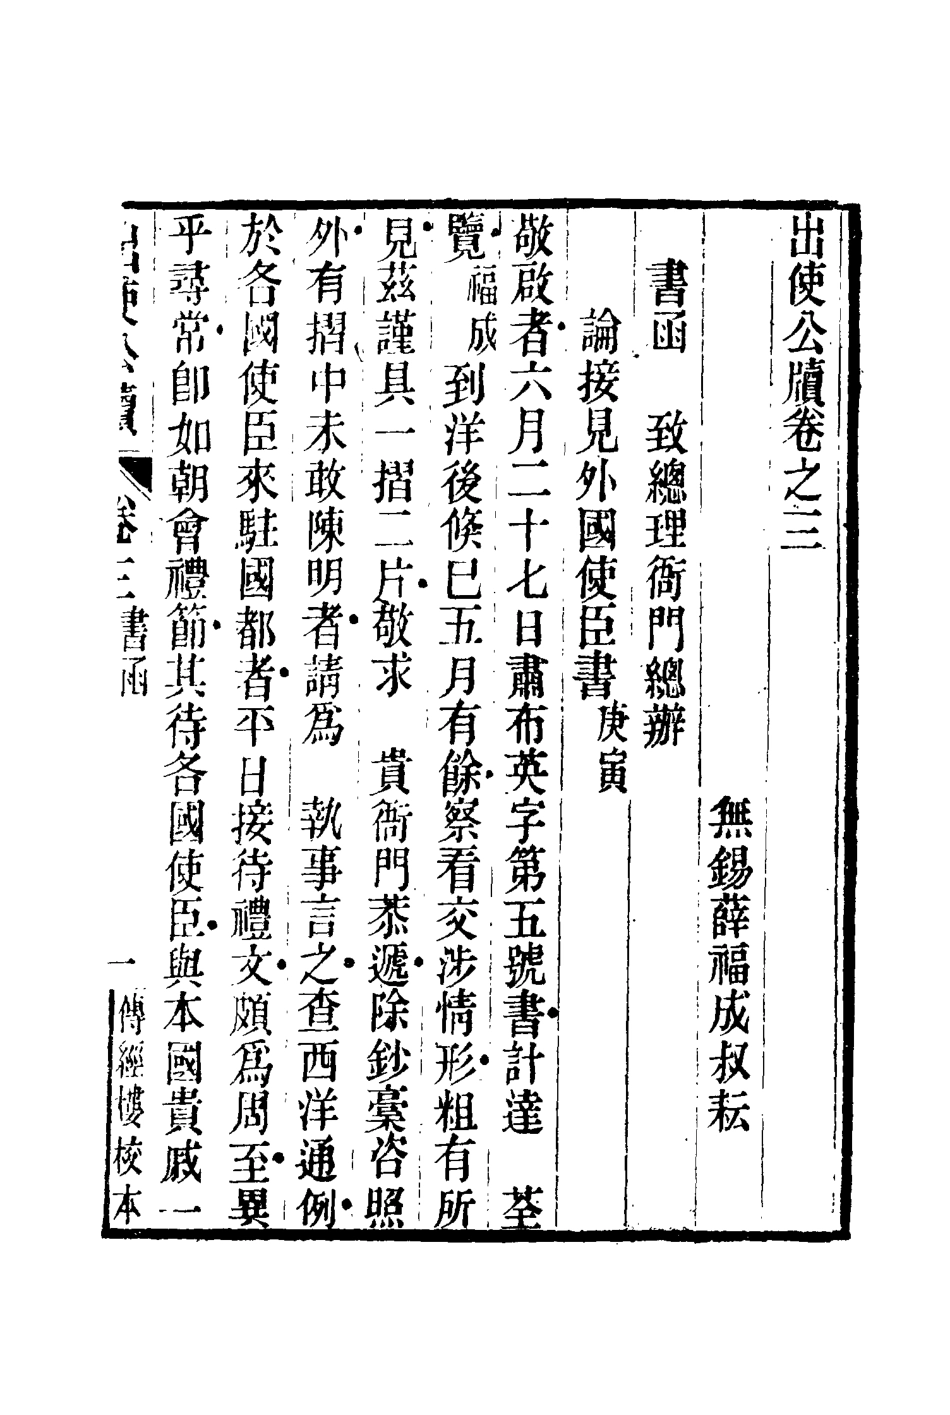 出使公牘卷之三
無錫薛福成叔耘
書函　致總理衙門總辦
論接見外國使臣書庚寅
敬啟者六月二十七日肅布英字第五號書計達　荃
覽福成到洋後倐已五月有餘察看交涉情形粗有所
見茲謹具一摺二片敬求　貴衙門恭遞除鈔藳咨照
外有摺中未敢陳明者請爲　執事言之查西洋通例
於各國使臣來駐國都者平日接待禮文頗爲周至異
乎尋常卽如朝會禮節其待各國使臣與本國貴戚一
出使公牘　卷三書函　一　傳經樓校本